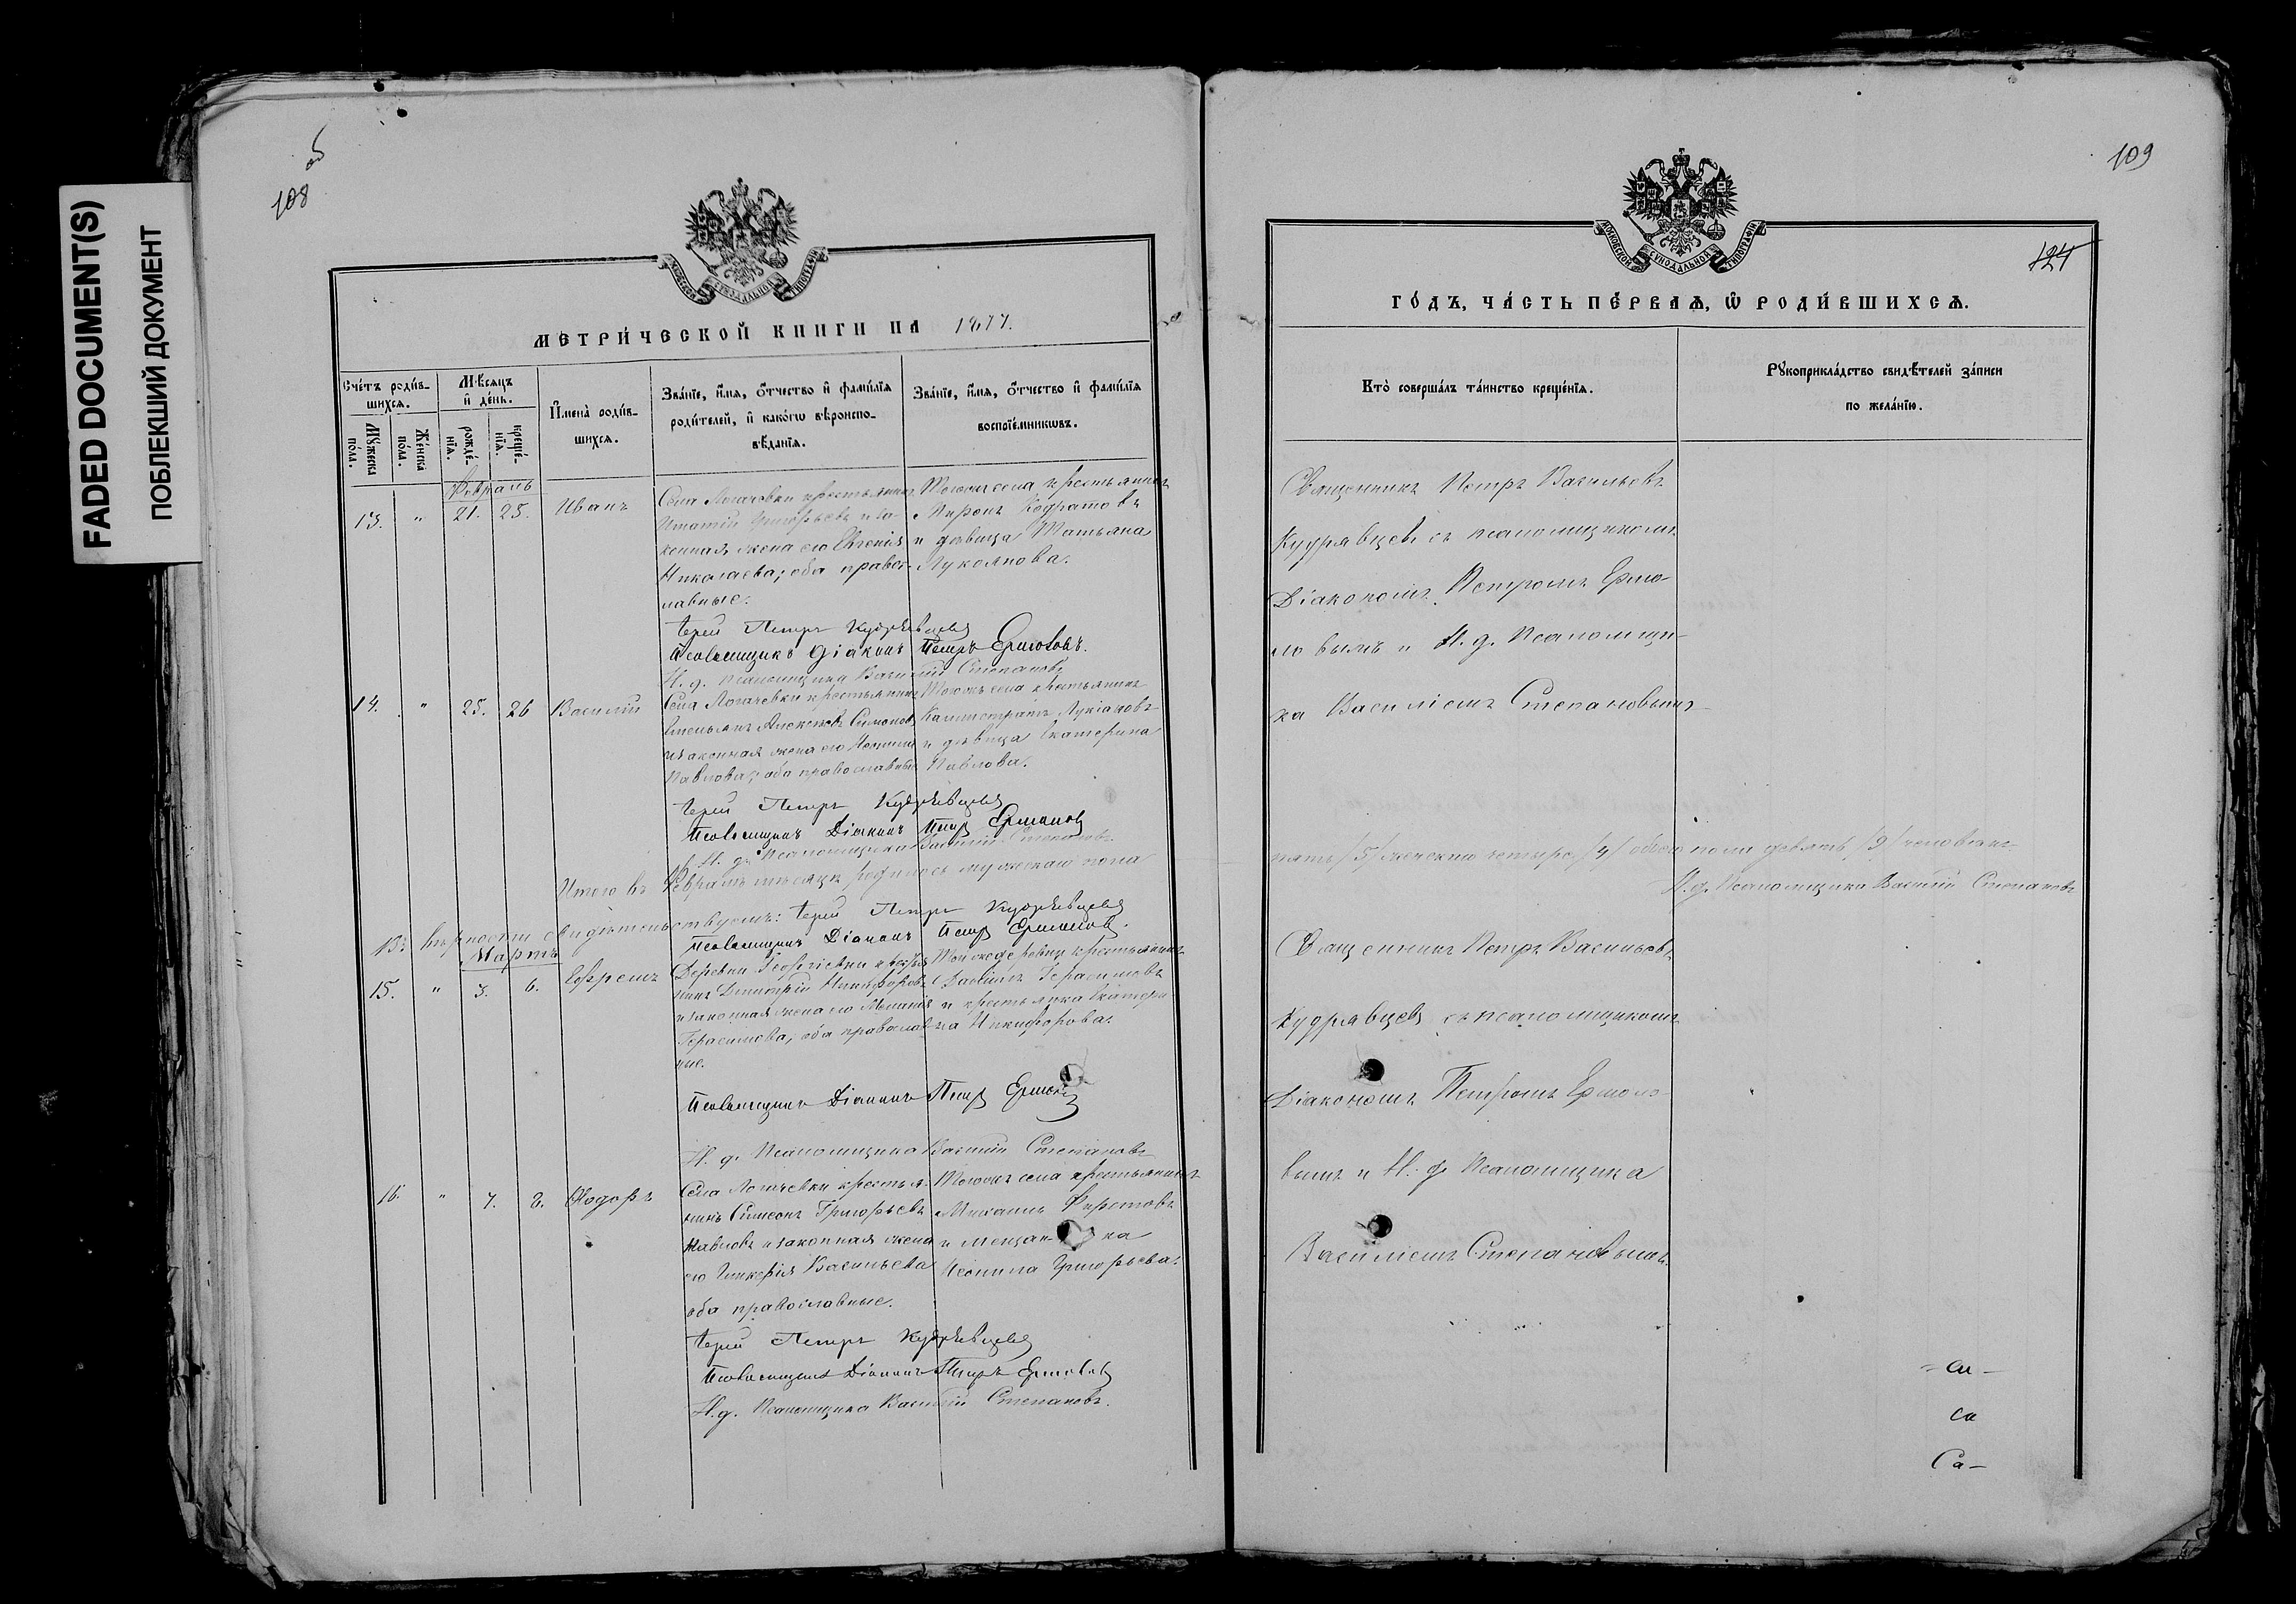 FADED DOCUMENT(S)
ПОБЛЕКШИЙ ДОКУМЕНТ
108
об
МОСКОВСКОЙ СѴНОДАЛЬНОЙ ТИПОГРАФІИ
МЕТРИ́ЧЕСКОЙ КНИГИ НА 1877.
Сче́тъ роди́в-
шихся.
Мѣ́сяцъ
и҆ де́нь.
И҆мена̀ роди́в-
шихся.
Зва́нїе, и҆́мя, ѻ҆́тчество и҆ фамѵ́лїя
роди́телей, и҆ како́гѡ вѣ́роиспо-
вѣ́данїя.
Зва́нїе, и҆́мя, ѻ҆́тчество и҆ фамѵ́лїя
воспрїе́мникѡвъ.
Мꙋ́жеска
по́ла.
Же́нска
по́ла.
рожде́-
нїя.
креще́-
нїя.
Февраль
13. " 21. 25. Иванъ
Села Логачевки крестьянинъ
Игнатій Григорьевъ и за-
конная жена его Евгенія
Николаева; оба правос-
лавные.
Тогожъ села крестьянинъ
Миронъ Кодратовъ
и девица Татьяна
Лукоянова.
Іерей Петръ Кудрявцевъ
Псаломщикъ Діаконъ Петръ Ермоловъ.
И. д. Псаломщика Василій Степановъ
14. " 25. 26 Василій
Села Логачевки крестьянинъ
Емельянъ Алексеевъ Симоновъ
и законная жена его
Павлова; оба православные
Тогожъ села крестьянинъ
Каллистратъ Лукіановъ
и девица Екатерина
Павлова.
Іерей Петръ Кудрявцевъ
Псаломщикъ Діаконъ Петръ Ермоловъ
И. д. Псаломщика Василій Степановъ
Итого въ Февралѣ мѣсяцѣ родилось мужескаго пола
Въ вѣрности свидѣтельствуемъ: Іерей Петръ Кудрявцевъ
Псаломщикъ Діаконъ Петръ Ермоловъ.
Мартъ
15. " 3. 6. Ефремъ
Деревни Георгіевки крестья-
нинъ Димитрій Никифоровъ
и законная жена его Меланія
Герасимова, оба православ-
ные.
Той же деревни крестьянинъ
Давыдъ Герасимовъ
и крестьянка Екатери-
на Никифорова.
Псаломщикъ Діаконъ Петръ Ермоловъ
И. д. Псаломщика Василій Степановъ
16. " 7. 8. Ѳеодоръ
Села Логачевки крестья-
нинъ Симеонъ Григорьевъ
Павловъ и законная жена
его Гликерія Васильева
оба православные.
Тогожъ села крестьянинъ
Михаилъ Фирстовъ
и мещанка
Неонила Григорьева.
Іерей Петръ Кудрявцевъ
Псаломщикъ Діаконъ Петръ Ермоловъ
И. д. Псаломщика Василій Степановъ.
109
124
МОСКОВСКОЙ СѴНОДАЛЬНОЙ ТИПОГРАФІИ
ГО́ДЪ, ЧА́СТЬ ПЕ́РВАЯ, Ѡ҆ РОДИ́ВШИХСЯ.
Кто̀ соверша́лъ та́инство креще́нїя.
Рꙋкоприкла́дство свидѣ́телей за́писи
по жела́нїю.
Священникъ Петръ Васильевъ
Кудрявцевъ съ псаломщикомъ
Діакономъ Петромъ Ермо-
ловымъ и И. д. Псаломщи-
ка Василіемъ Степановымъ
пять /5/ женскаго четыре /4/ обоего пола девять /9/ человѣкъ
И. д. Псаломщика Василій Степановъ
Священникъ Петръ Васильевъ
Кудрявцевъ съ псаломщикомъ
Діакономъ Петромъ Ермоло-
вымъ и И. д. Псаломщика
Василіемъ Степановымъ.
- си -
са
Са -